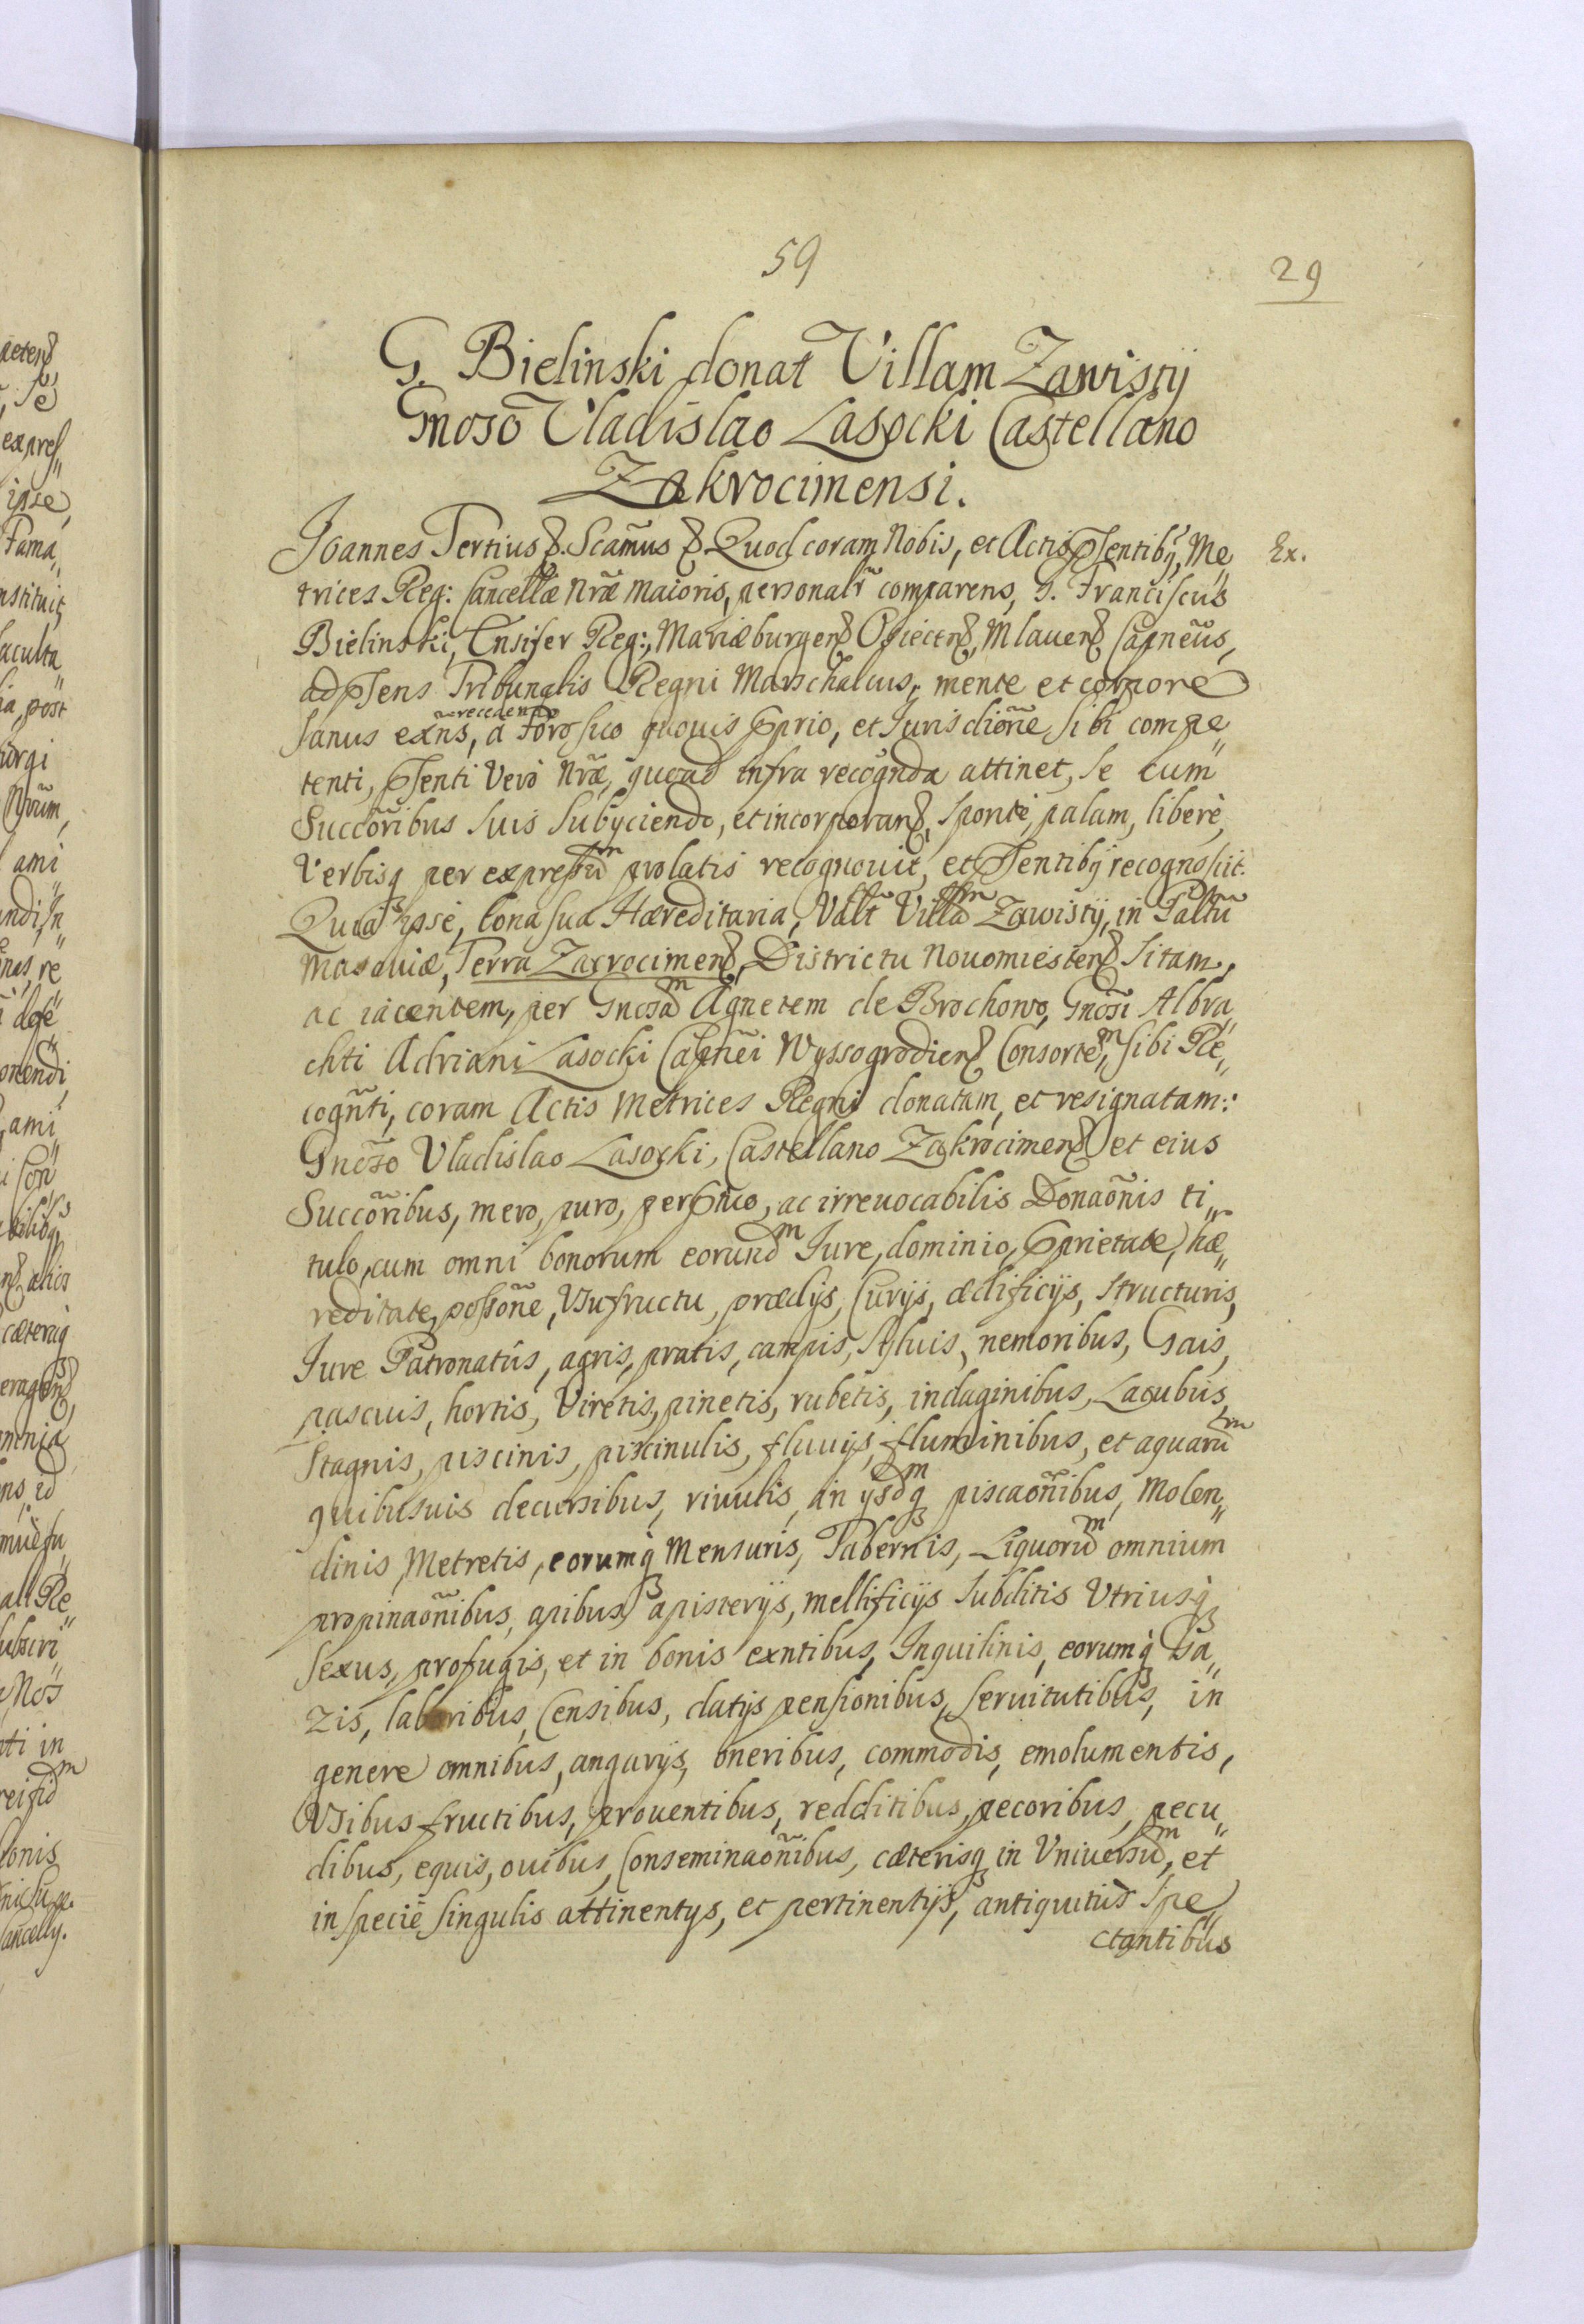 59
29
G. Bielinski donat Villam Zawisty
Gnoso Vladislao Lasocki Castellano
Zakrocimensi.
Joannes Tertius &. Scamus & Quod coram Nobis, et Actis psentibg, Me„
Ex.
trices Reg: Cancellæ nræ maioris, personalr comparens, G. Franciscus
Bielinski, Ensifer Reg:, Mariæburgen Osiecen, Mlaven Capneus,
ad psens Tribunalis Regni Marschalcus, mente et corpore
recedendo
sanus exns, a Foro suo quovis pprio, et Jurisdione sibi compe„
tenti, psenti vero nræ, quoad infra recognda attinet, se cum
Succoribus suis subyciendo, et incorporan, sponte, palam, libere,
verbisq per expressum prolatis recognouit, et psentibg recognoscit.
Quia ipse, bona sua Hæreditaria, Valt Villam Zawisty, in Paltu
Masoviæ, Terra Zacrocimen, Districtu Novomiesten sitam,
ac iacentem, per Gnosam Agnetem de Brochowo, Gnosi Albra„
chti Adriani Lasocki Capnei Wyssogrodien Consortem, sibi Re„
cognti, coram Actis Metrices Regni donatam, et resignatam:
Gnoso Vladislao Lasocki, Castellano Zakrocimen et eius
Succoribus, mero, puro, perpetuo, ac irrevocabilis Donaonis ti„
tulo, cum omni bonorum eorundm Jure, dominio, pprietate, hæ„
reditate, possone, Vsufructu, prædijs, Curijs, ædificijs, structuris,
Jure Patronatus, agris, pratis, campis, sylvis, nemoribus, Gais,
pascuis, hortis, Viretis, pinetis, rubetis, indaginibus, Lacubus,
Stagnis, piscinis, piscinulis, fluvijs, fluminibus, et aquarum
quibusvis decursibus, rivulis, in ijsdmq piscaonibus, Molen„
dinis, Metretis, eorumq Mensuris, Tabernis, Liquorum omnium
propinaonibus, apibus, apisterijs, mellificijs subditis utriusq
sexus, profugis, et in bonis exntibus, Inquilinis, eorumq Ga„
zis, laboribus, Censibus, datijs pensionibus, servitutibus, in
genere omnibus, angarijs, oneribus, commodis, emolumentis,
Vsibus fructibus, proventibus, redditibus, pecoribus, pecu„
dibus, equis, ovibus, Conseminaonibus, cæterisq in Universum, et
in specie singulis attinentys, et pertinentijs, antiquitus spe„
ctantibus